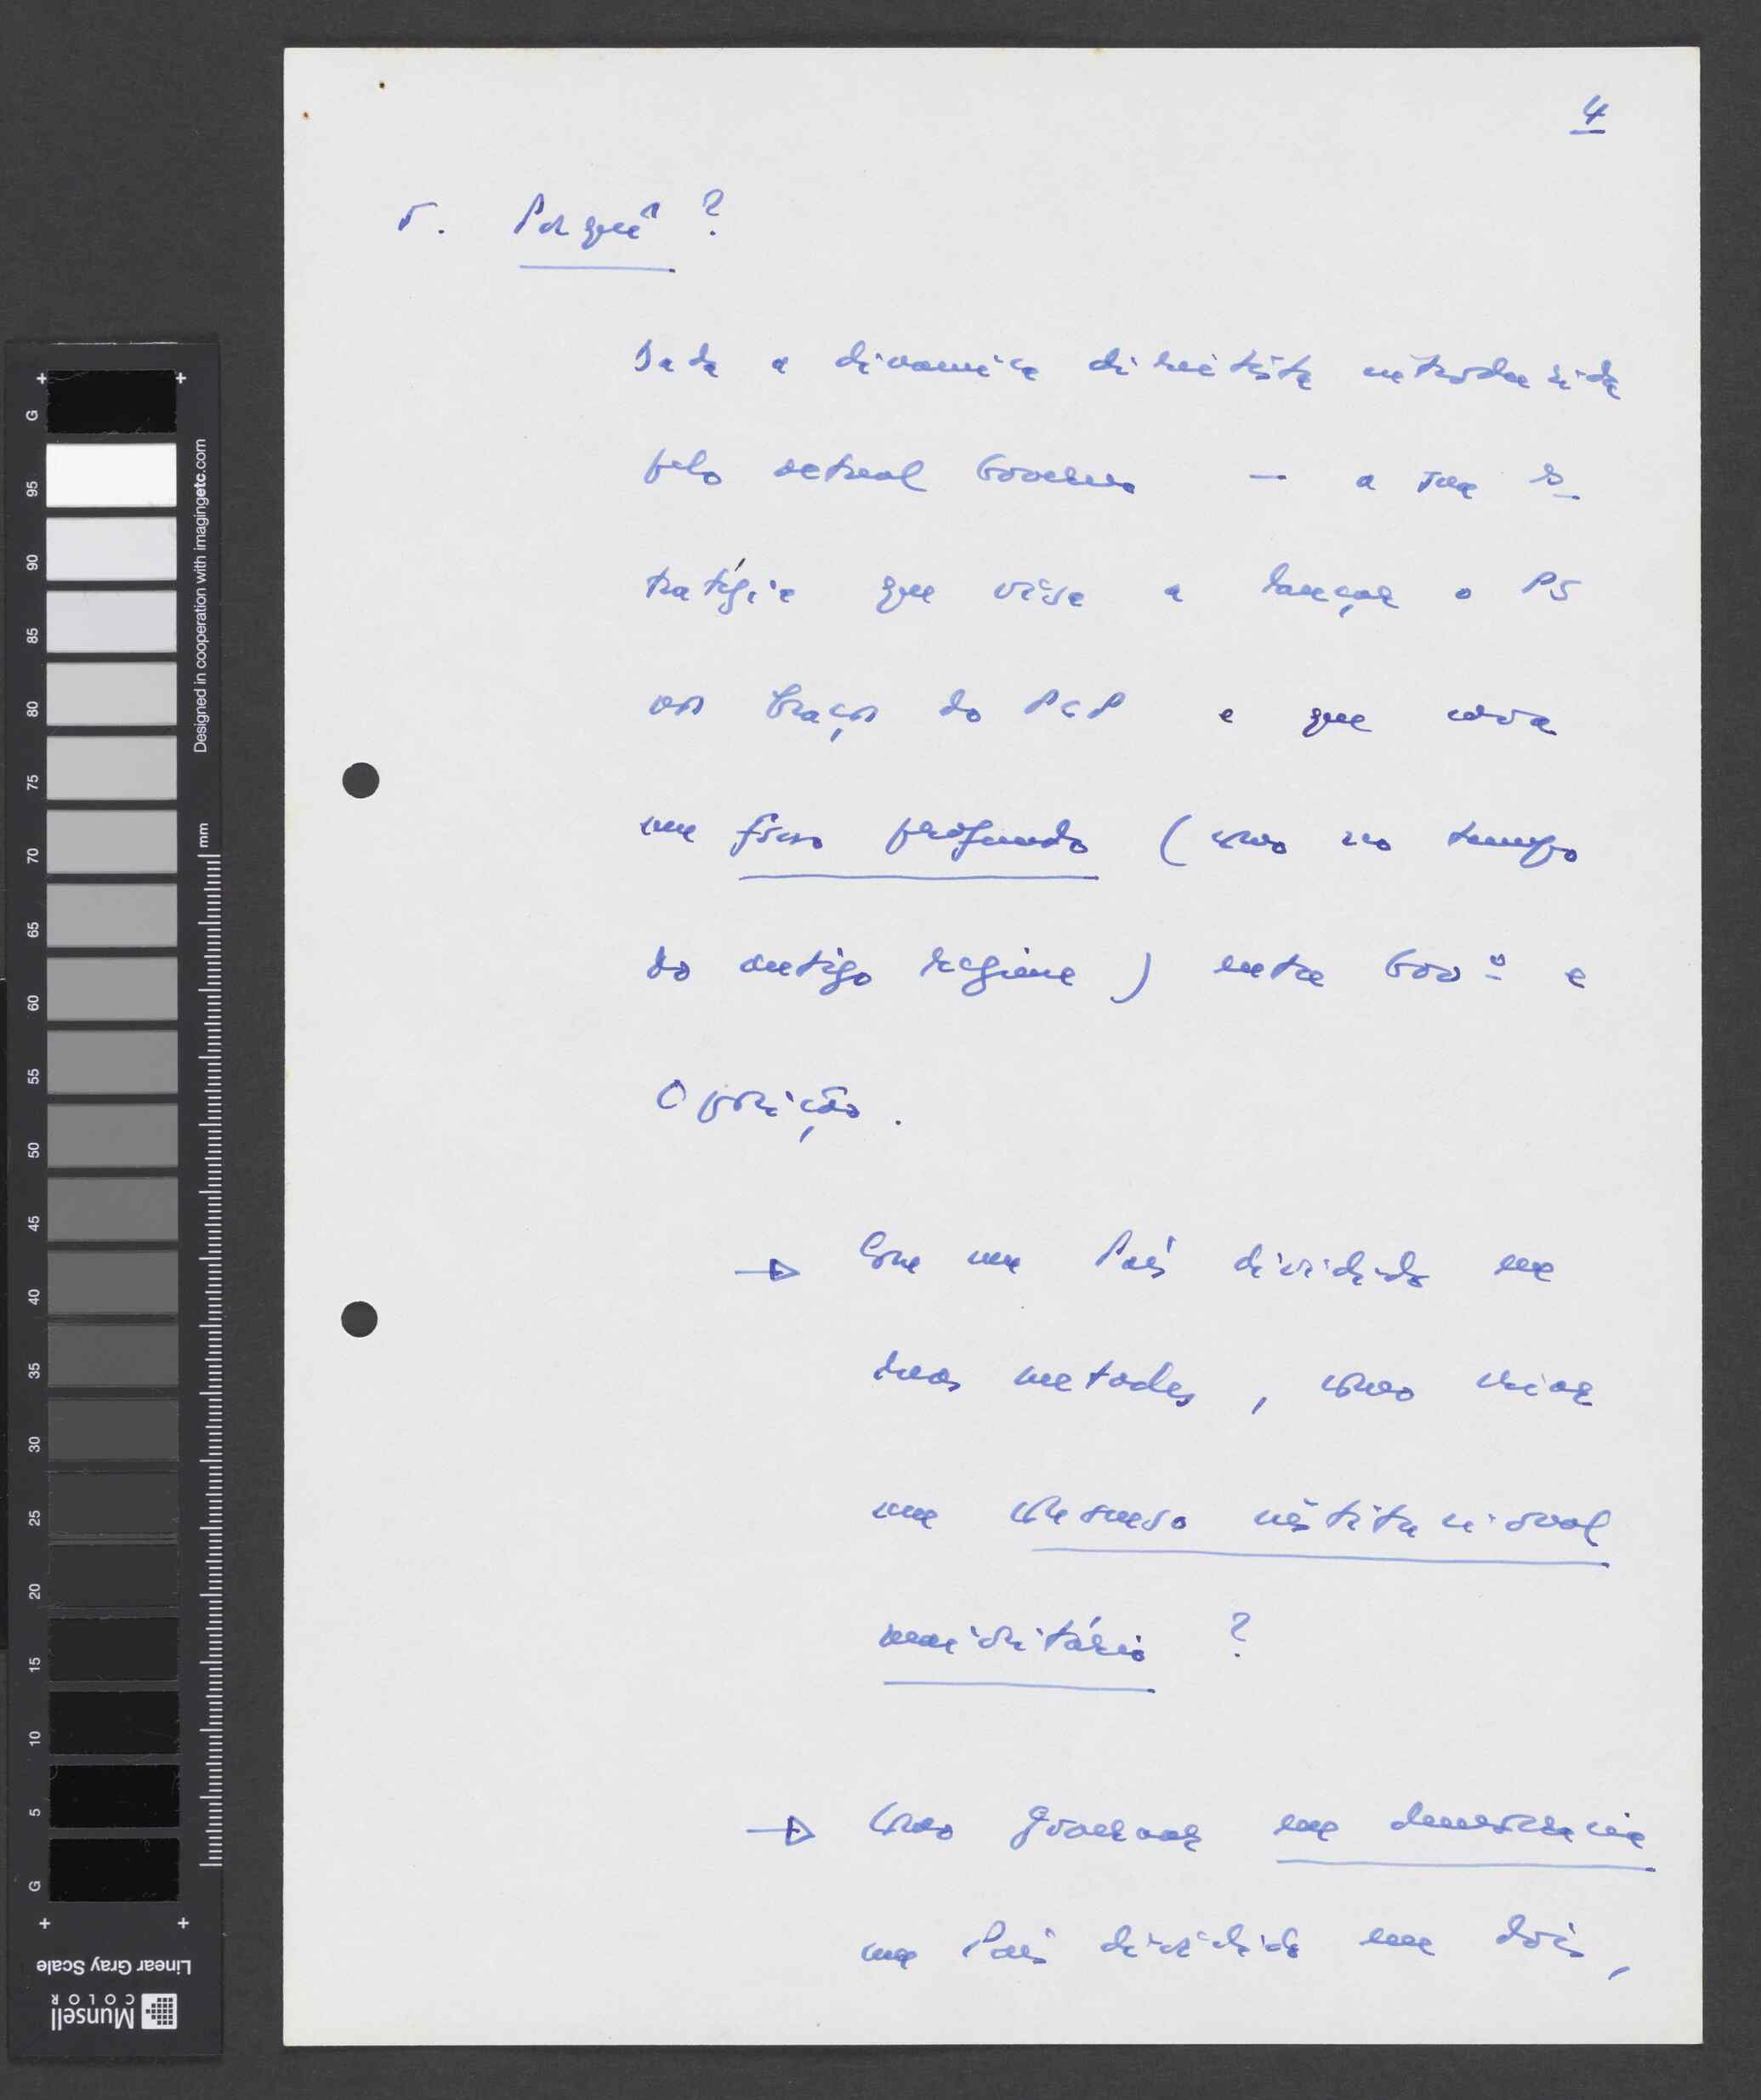 4
5. Porquê ?
Dada a dinamica direitista introduzida
pelo actual Governo — a sua es-
tratégia que visa a lançar o PS
nos braços do PCP e que cava
um fosso profundo (como no tempo
do antigo regime) entre Govº e
Oposição.
→ Com um País dividido em
duas metades, como criar
um consenso institucional
maioritário ?
→ Como governar em democracia
um País dividido em dois,
G
95
90
85
80
75
70
65
60
55
50
45
40
35
30
25
20
15
10
5
G
Designed in cooperation with imagingetc.com
mm
Linear Gray Scale
Munsell
COLOR